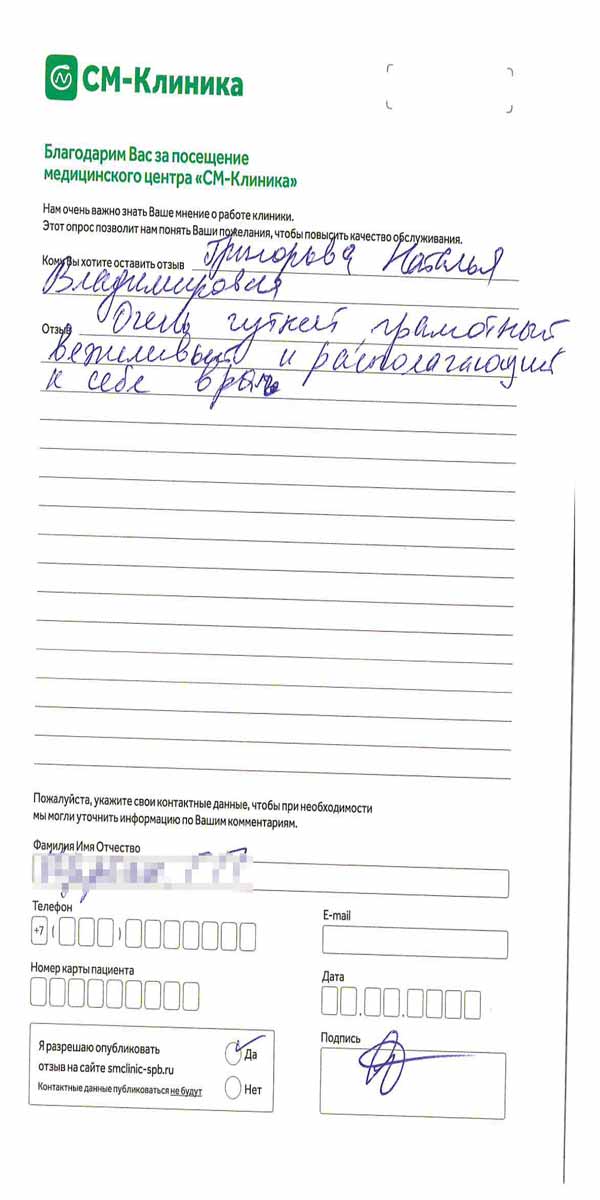 СМ-Клиника
Благодарим Вас за посещение
медицинского центра «СМ-Клиника»
Нам очень важно знать Ваше мнение о работе клиники.
Этот опрос позволит нам понять Ваши пожелания, чтобы повысить качество обслуживания.
Кому Вы хотите оставить отзыв Григорьева Наталья
Владимировна
Отзыв Очень чуткий, грамотный,
вежливый и располагающий
к себе врач
Пожалуйста, укажите свои контактные данные, чтобы при необходимости
мы могли уточнить информацию по Вашим комментариям.
Фамилия Имя Отчество
Телефон E-mail
+7 ( )
Номер карты пациента Дата
Я разрешаю опубликовать
отзыв на сайте smclinic-spb.ru
Контактные данные публиковаться не будут
Да
Нет
Подпись